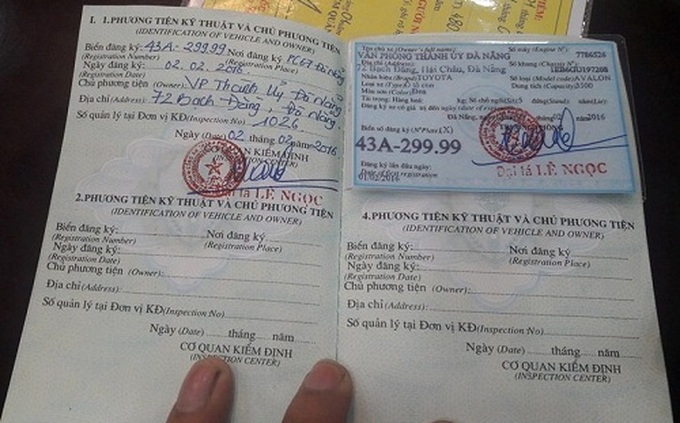 I. 1.PHƯƠNG TIỆN KỸ THUẬT VÀ CHỦ PHƯƠNG TIỆN
(IDENTIFICATION OF VEHICLE AND OWNER)
Biển đăng ký: 43A-299.99 Nơi đăng ký PC67 Đà Nẵng
(Registration Number) (Registration Place)
Ngày đăng ký: 02.02.2016
(Registration Date)
Chủ phương tiện (Owner): VP Thành Ủy Đà Nẵng
Địa chỉ (Address): 72 Bạch Đằng, Đà Nẵng
Số quản lý tại Đơn vị KĐ(Inspection No) 1026
Ngày (Date) 02 tháng 02 năm 2016
CƠ QUAN KIỂM ĐỊNH
LÊ NGỌC
2.PHƯƠNG TIỆN KỸ THUẬT VÀ CHỦ PHƯƠNG TIỆN
(IDENTIFICATION OF VEHICLE AND OWNER)
Biển đăng ký: Nơi đăng ký
(Registration Number) (Registration Place)
Ngày đăng ký:
(Registration Date)
Chủ phương tiện (Owner):
Địa chỉ (Address):
Số quản lý tại Đơn vị KĐ(Inspection No)
Ngày (Date) tháng năm
CƠ QUAN KIỂM ĐỊNH
(INSPECTION CENTER)
Tên chủ xe (Owner's full name): Số máy (Engine N°)
VĂN PHÒNG THÀNH ỦY ĐÀ NẴNG 7786526
Địa chỉ (Address): Số khung (Chassis N°)
72 Bạch Đằng, Hải Châu, Đà Nẵng
Nhãn hiệu (Brand) TOYOTA Số loại (Model code) AVALON
Loại xe (Type) Ô tô con Dung tích (Capacity) 3500
Màu sơn (Color) Đen
Tải trọng: Hàng hoá: kg; Số chỗ ngồi (Sit): 5 đứng (Stand): nằm (Lie):
Đà Nẵng, 2016
Biển số đăng ký (N° Plate)
43A-299.99
Đăng ký lần đầu ngày:
Date of first registration
Đại tá LÊ NGỌC
4.PHƯƠNG TIỆN KỸ THUẬT VÀ CHỦ PHƯƠNG TIỆN
(IDENTIFICATION OF VEHICLE AND OWNER)
Biển đăng ký: Nơi đăng ký
(Registration Number) (Registration Place)
Ngày đăng ký:
(Registration Date)
Chủ phương tiện (Owner):
Địa chỉ (Address):
Số quản lý tại Đơn vị KĐ(Inspection No)
Ngày (Date) tháng năm
CƠ QUAN KIỂM ĐỊNH
(INSPECTION CENTER)